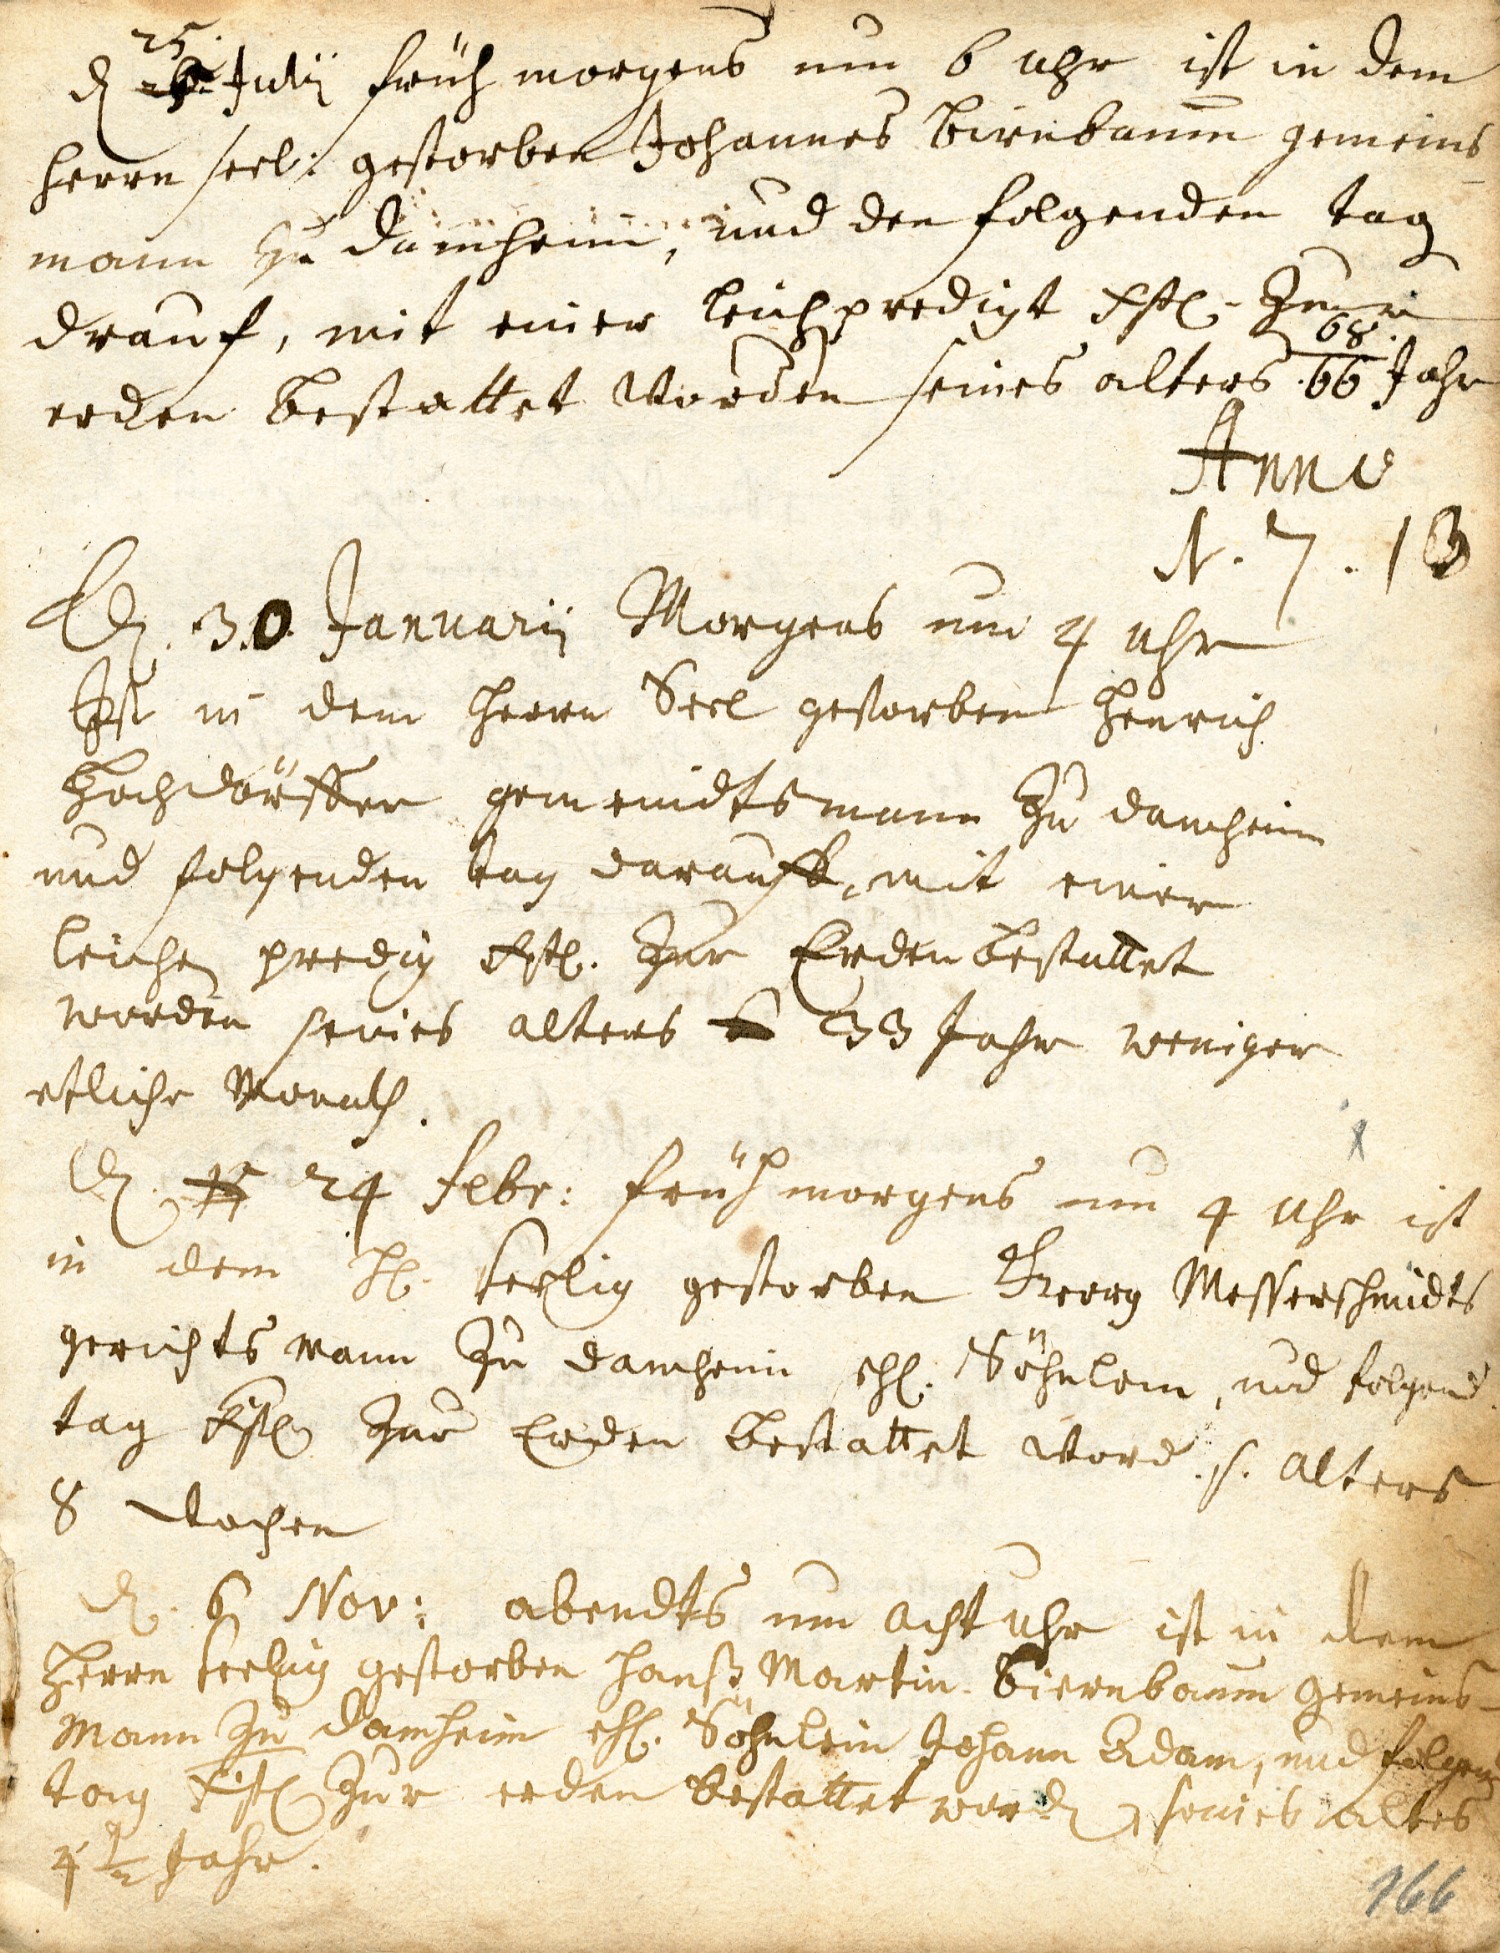 25.
d. Julij früh morgens um 6 uhr ist in dem
Herrn seel: gestorben Johannes Birnbaum gemeins-
mann zu Damheim, und den folgenden tag
drauf, mit einer leichpredigt Xstl. zur
68.
erden bestattet worden seines alters 66 Jahr
Anno
1713
D. 30 Januarij Morgens um 4 uhr
Ist in dem Herrn Seel gestorben Henrich
Hochdörffer gemeindtsmann zu damheim
und folgenden tag darauff, mit einer
leichen predig Xstl. zur Erden bestattet
worden seines alters 33 Jahr weniger
etliche Monath.
D. 24 Febr: früh morgens um 4 uhr ist
in dem H. seelig gestorben Georg Messerschmidts
gerichtsmann zu damheim ehl. Söhnlein, und folgend
tag Xstl zur Erden bestattet word. s. alters
8 wochen
d. 6 Nov: abendts um acht uhr ist in dem
Herrn seelig gestorben Hanß Martin Biernbaum gemeins-
mann zu damheim ehl. Söhnlein Johann Adam, und folgend
tag Xstl zur erden bestattet word, seines alters
4 1/2 Jahr.
166